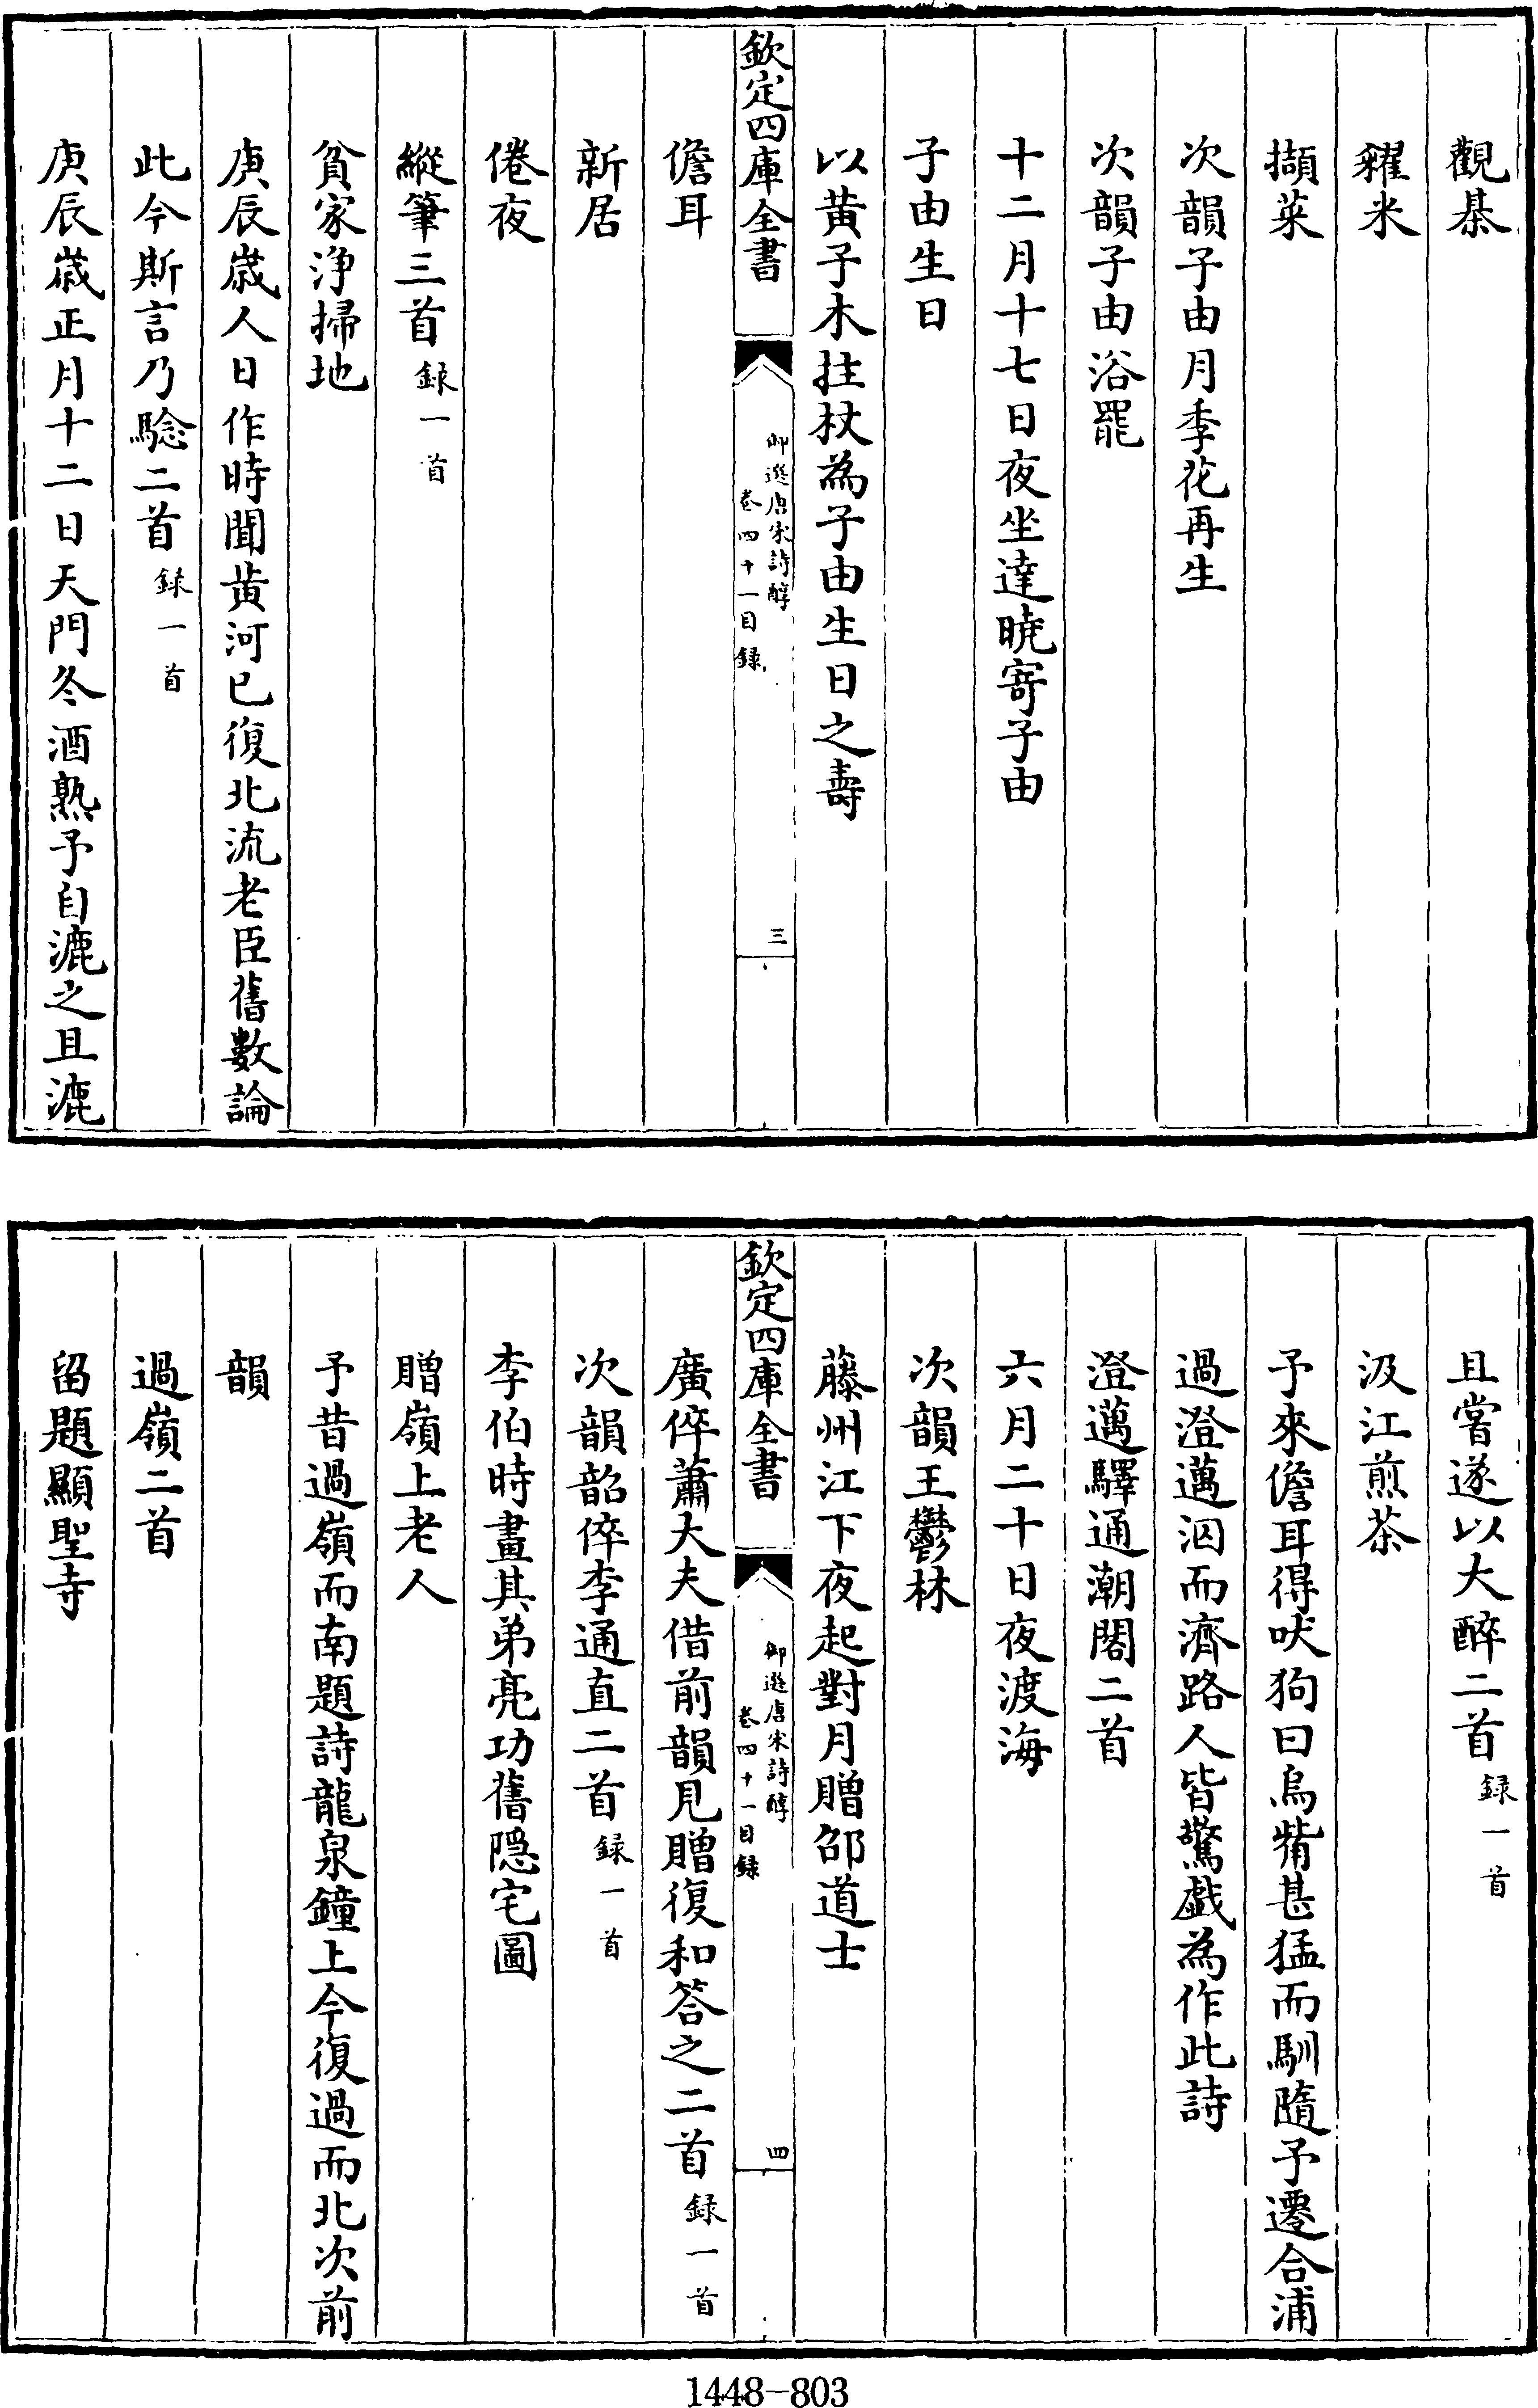 觀棊
糴米
擷菜
次韻子由月季花再生
次韻子由浴罷
十二月十七日夜坐達曉寄子由
子由生日
以黃子木拄杖為子由生日之壽
欽定四庫全書
御選唐宋詩醇
卷四十一目録
三
儋耳
新居
倦夜
縱筆三首録一首
貧家淨掃地
庚辰歲人日作時聞黃河已復北流老臣舊數論
此今斯言乃騐二首録一首
庚辰歲正月十二日天門冬酒熟予自漉之且漉
且嘗遂以大醉二首録一首
汲江煎茶
予來儋耳得吠狗曰烏觜甚猛而馴隨予遷合浦
過澄邁泅而濟路人皆驚戲為作此詩
澄邁驛通潮閣二首
六月二十日夜渡海
次韻王鬱林
藤州江下夜起對月贈邵道士
欽定四庫全書
御選唐宋詩醇
卷四十一目録
四
廣倅蕭大夫借前韻見贈復和答之二首録一首
次韻韶倅李通直二首録一首
李伯時畫其弟亮功舊隱宅圖
贈嶺上老人
予昔過嶺而南題詩龍泉鐘上今復過而北次前
韻
過嶺二首
留題顯聖寺
1448-803